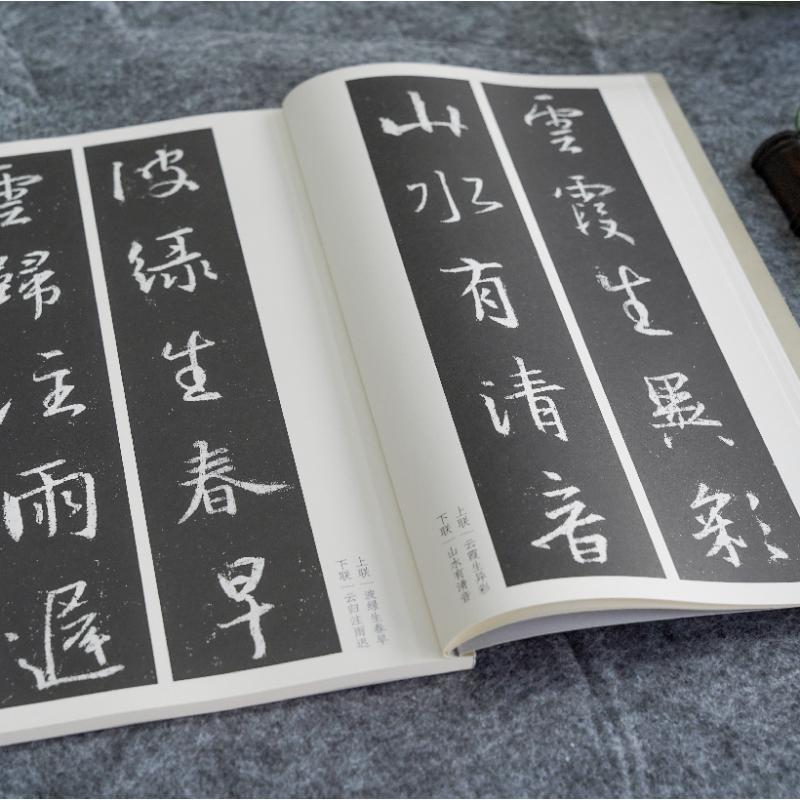 雲霞生異彩
山水有清音
上联｜云霞生异彩
下联｜山水有清音
波緑生春早
雲歸注雨遲
上联｜波绿生春早
下联｜云归注雨迟